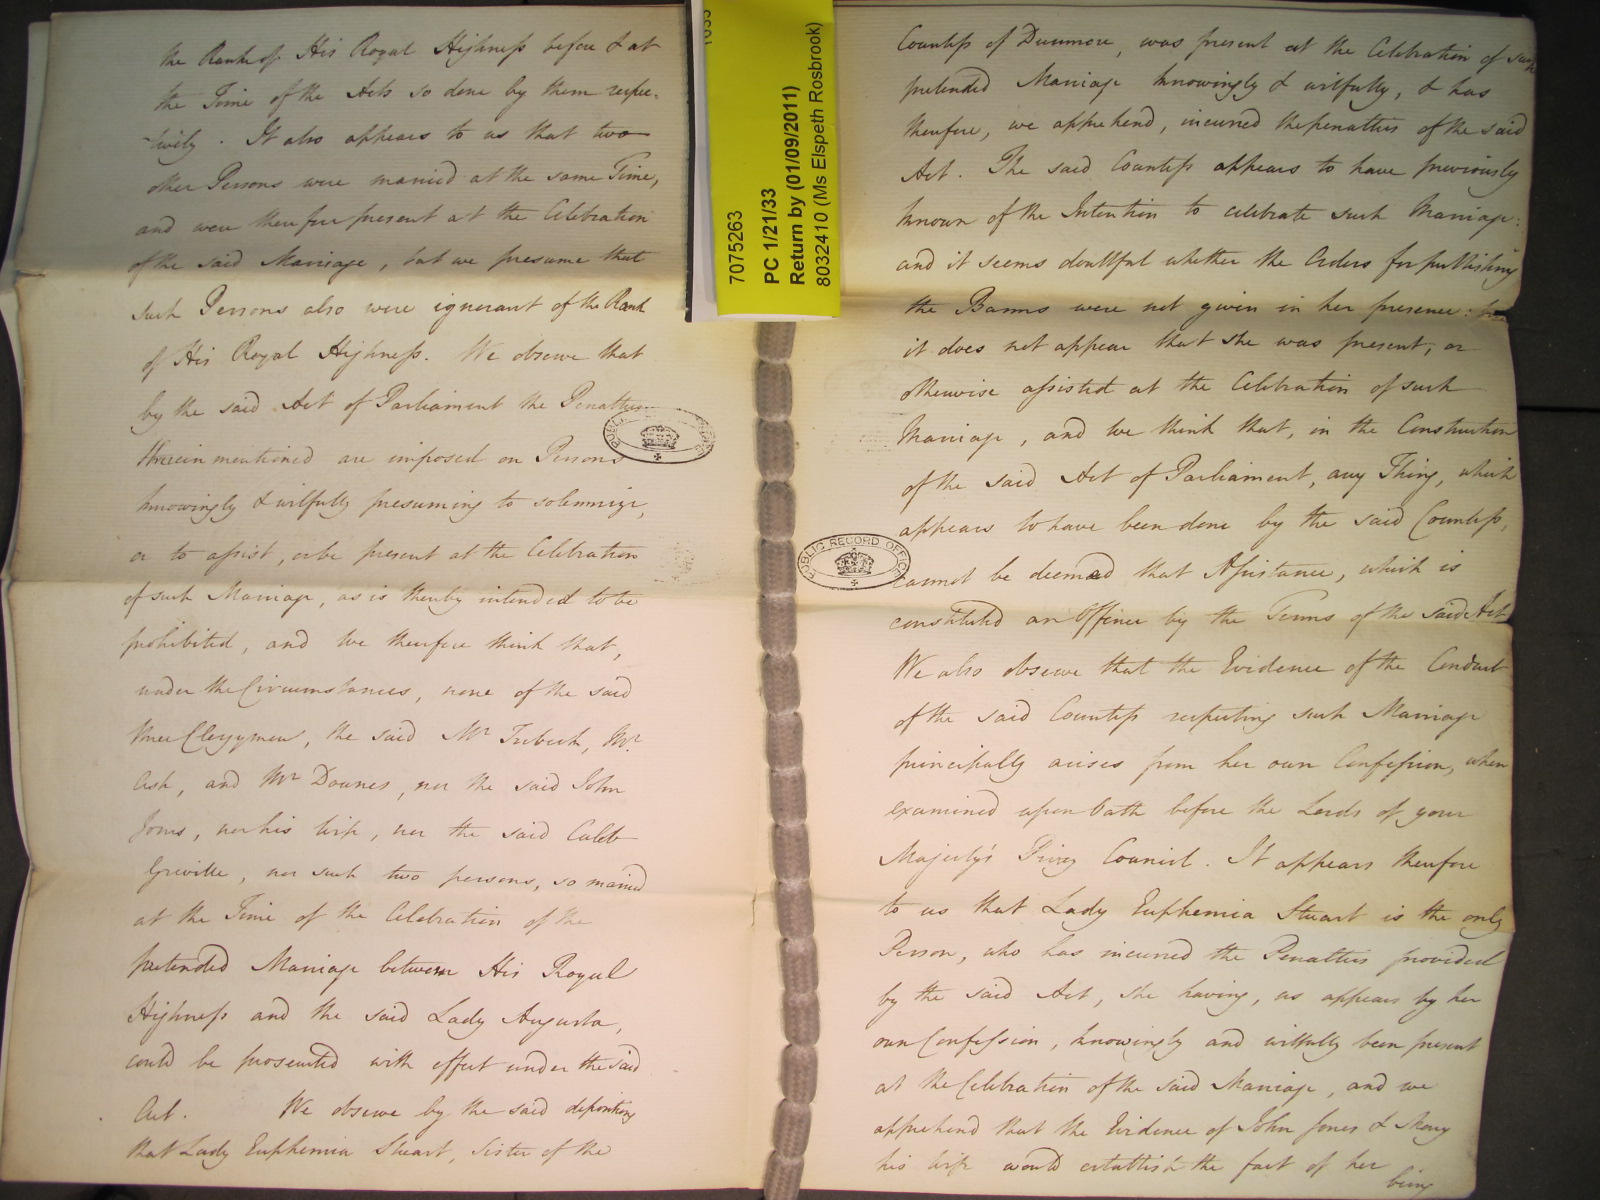 the Rank of His Royal Highness before & at
the Time of the Acts so done by them respec-
-tively. It also appears to us that two
other Persons were married at the same Time,
and were therefore present at the Celebration
of the said Marriage, but we presume that
such Persons also were ignorant of the Rank
of His Royal Highness. We observe that
by the said Act of Parliament the Penalties
therein mentioned are imposed on Persons
knowingly & wilfully presuming to solemnize,
or to assist, or be present at the Celebration
of such Marriage, as is thereby intended to be
prohibited, and we therefore think that,
under the Circumstances, none of the said
three Clergymen, the said Mr Trebeck, Mr
Ash, and Mr Downes, nor the said John
Jones, nor his wife, nor the said Caleb
Greville, nor such two persons, so married
at the Time of the Celebration of the
pretended Marriage between His Royal
Highness and the said Lady Augusta,
could be prosecuted with effect under the said
Act. We observe by the said depositions
that Lady Euphemia Stuart, Sister of the
7075263
PC 1/21/33
Return by (01/09/2011)
8032410 (Ms Elspeth Rosbrook)
Countess of Dunmore, was present at the Celebration of such
pretended Marriage knowingly & wilfully, & has
therefore, we apprehend, incurred the penalties of the said
Act. The said Countess appears to have previously
known of the Intention to celebrate such Marriage:
and it seems doubtful whether the Orders for publishing
the Banns were not given in her presence:
it does not appear that she was present, or
otherwise assisted at the Celebration of such
Marriage, and we think that, in the Construction
of the said Act of Parliament, any Thing, which
appears to have been done by the said Countess,
cannot be deemed that Assistance, which is
constituted an Offence by the Terms of the said Act
We also observe that the Evidence of the Conduct
of the said Countess respecting such Marriage
principally arises from her own Confession, when
examined upon Oath before the Lords of your
Majesty's Privy Council. It appears therefore
to us that Lady Euphemia Stuart is the only
Person, who has incurred the Penalties provided
by the said Act, she having, as appears by her
own Confession, knowingly and wilfully been present
at the Celebration of the said Marriage, and we
apprehend that the Evidence of John Jones & Mary
his wife would establish the fact of her
being
PUBLIC RECORD OFFICE